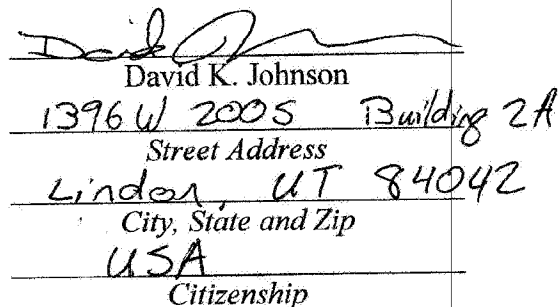 David
David K. Johnson
1396 W 200 S Building 2A
Street Address
Lindon, UT 84042
City, State and Zip
USA
Citizenship